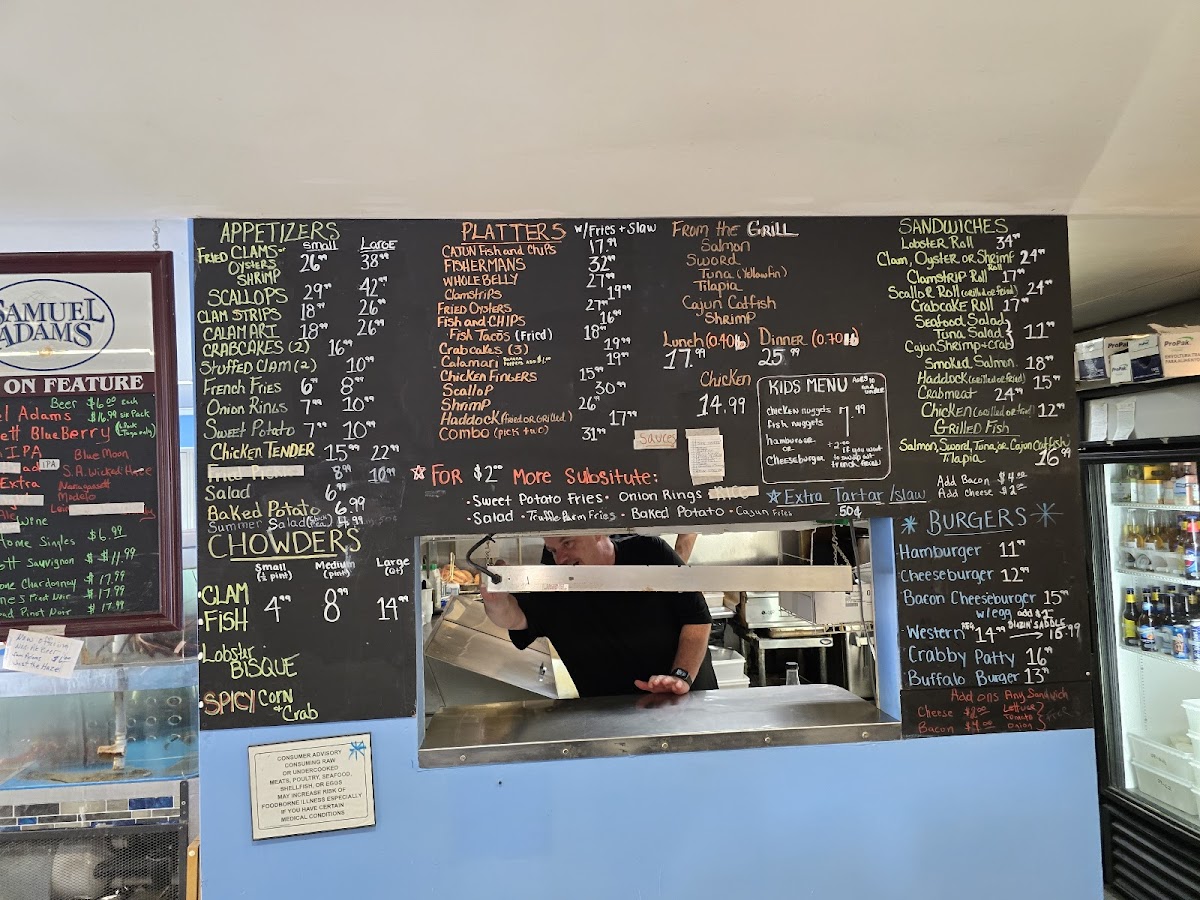 SAMUEL
ADAMS
ON FEATURE
Beer $6.00 each
Adams $16.99 six Pack
BlueBerry
IPA
IPA
Blue Moon
S.A. Wicked Haze
Extra
Narragansett
Modelo
Wine
Home Singles $6.99
Sauvignon $11.99
Chardonnay $17.99
Pinot Noir $17.99
Pinot Noir $17.99
APPETIZERS
Small Large
FRIED CLAMS
OYSTERS 26.99 38.99
SHRIMP
SCALLOPS 29.99 42.99
CLAM STRIPS 18.99 26.99
CALAMARI 18.99 26.99
CRABCAKES (2) 16.99
STUFFED CLAM (2) 10.99
French Fries 6.99 8.99
Onion Rings 7.99 10.99
Sweet Potato 7.99 10.99
Chicken TENDER 15.99 22.99
8.99 10.99
Salad 6.99
Baked Potato 6.99
Summer Salad
CHOWDERS
Small (½ pint) Medium (pint) Large (Qt)
• CLAM
• FISH 4.99 8.99 14.99
• Lobster
BISQUE
• SPICY Corn
+ Crab
PLATTERS w/Fries + Slaw
CAJUN Fish and Chips 17.99
FISHERMANS 32.99
WHOLE BELLY 27.99
Clamstrips 19.99
FRIED OYSTERS 27.99
Fish and CHIPS 16.99
Fish Tacos (Fried) 18.99
Crabcakes (3) 19.99
Calamari 19.99
Chicken Fingers 15.99
Scallop 30.99
Shrimp 26.99
Haddock (Fried or Grilled) 17.99
Combo (pick two) 31.99
From the GRILL
Salmon
Sword
Tuna (Yellowfin)
Tilapia
Cajun Catfish
Shrimp
Lunch (0.40 lb) Dinner (0.70 lb)
17.99 25.99
Chicken
14.99
KIDS MENU
chicken nuggets
fish nuggets 7.99
hamburger
or
Cheeseburger
+2.00
if you want
to swap out
french fries
Sauces
FOR $2.00 More Subsitute:
• Sweet Potato Fries • Onion Rings
• Salad • Truffle Parm Fries • Baked Potato • Cajun Fries
Extra Tartar / slaw
.50¢
SANDWICHES
Lobster Roll 34.99
Clam, Oyster or Shrimp Roll 24.99
Clamstrip Roll 17.99
Scallop Roll (Grilled or fried) 24.99
Crabcake Roll 17.99
Seafood Salad
Tuna Salad } 11.99
Cajun Shrimp + Crab
Smoked Salmon 18.99
Haddock (Grilled or fried) 15.99
Crabmeat 24.99
Chicken (Grilled or fried) 12.99
GRILLED FISH
Salmon, Sword, Tuna, or Cajun Catfish
Tilapia 16.99
Add Bacon $4.00
Add cheese $2.00
BURGERS
Hamburger 11.99
Cheeseburger 12.99
Bacon Cheeseburger 15.99
w/egg add $2
Western 14.99 BLAZIN' SADDLE 16.99
Crabby Patty 16.99
Buffalo Burger 13.99
Add ons Any Sandwich
Cheese $2.00 Lettuce
Bacon $4.00 Tomato
Onion
CONSUMER ADVISORY
CONSUMING RAW
OR UNDERCOOKED
MEATS, POULTRY, SEAFOOD,
SHELLFISH, OR EGGS
MAY INCREASE RISK OF
FOODBORNE ILLNESS ESPECIALLY
IF YOU HAVE CERTAIN
MEDICAL CONDITIONS
ProPak
ProPak